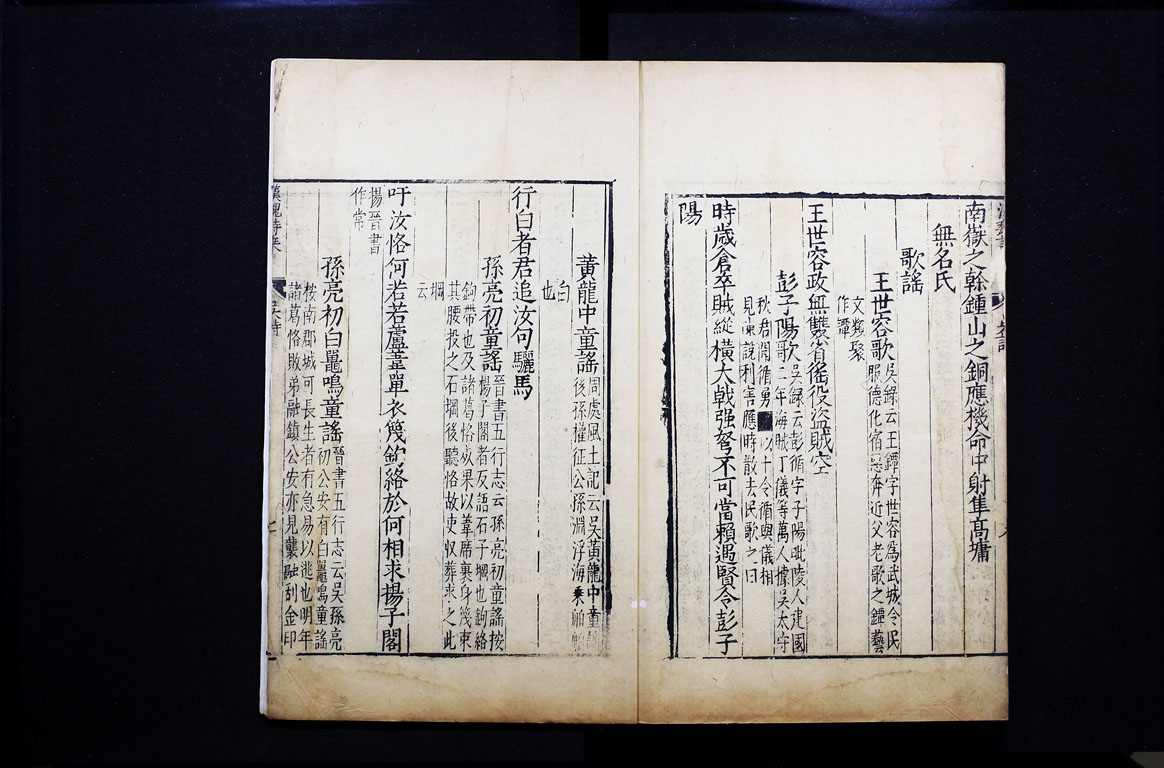 南嶽之榦鍾山之銅應機命中射隼高墉
無名氏
歌謡
王世容歌吳録云王鐔字世容為武城令民
服德化宿惡奔近父老歌之鐔藝
文類聚
作譚
王世容政無雙省徭役盜賊空
彭子陽歌吳録云彭循字子陽毗陵人建國
二年海賊丁儀等萬人據吳太守
秋君聞循勇以十令循與儀相
見陳說利害應時散去民歌之曰
時歲倉卒賊縱橫大戟强弩不可當賴遇賢令彭子
陽
黃龍中童謡周處風土記云吳黃龍中童謡
後孫權征公孫淵浮海乘舶舶
白
也
行白者君追汝句驪馬
孫亮初童謡晉書五行志云孫亮初童謡按
楊子閣者反語石子堈也鉤絡
鉤帶也及諸葛恪死果以葦席裹身篾束
其腰投之石堈後聽恪故吏収葬求之此
堈
云
吁汝恪何若若蘆葦單衣篾鉤絡於何相求揚子閣
揚晉書
作常
孫亮初白鼉鳴童謡晉書五行志云吳孫亮
初公安有白鼉鳴童謡
按南郡城可長生者有急易以逃也明年
諸葛恪敗弟融鎮公安亦見襲融刮金印
漢魏詩乘
吳詩